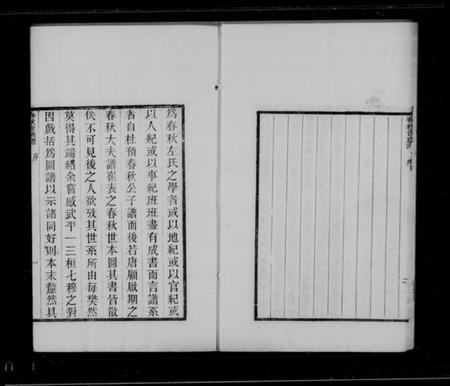 爲春秋左氏之學者或以地紀或以官紀或
以人紀或以事紀班班盡有成書而言譜系
者自杜預春秋公子譜而後若唐顧啟期之
春秋大夫譜崔表之春秋世本圖其書皆散
佚不可見後之人欲攷其世系所由每樊然
莫得其端緒余嘗感武平一三桓七穆之對
因戲括爲圖譜以示諸同好則本末釐然具
序